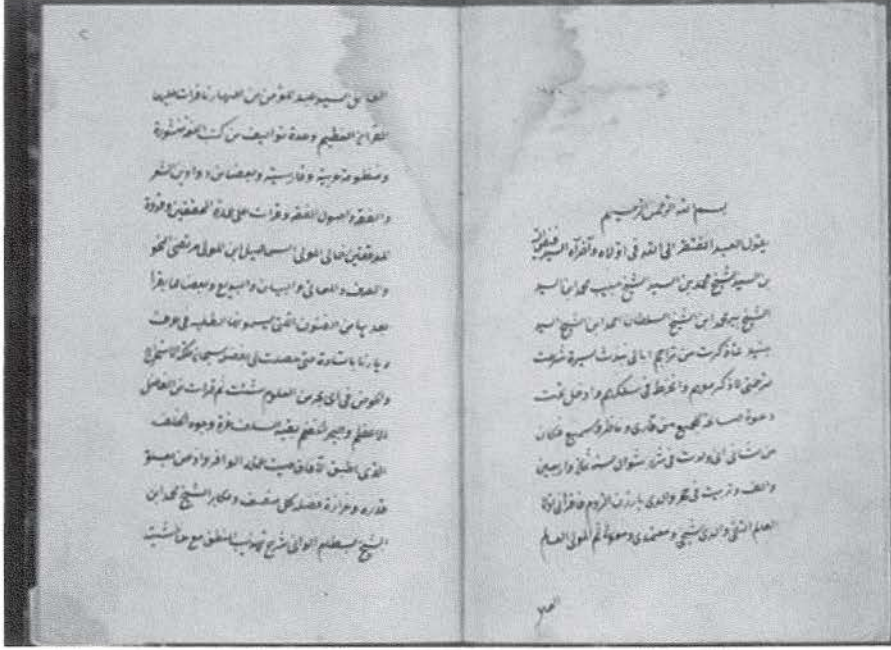 بسم الله الرحمن الرحيم
يقول العبد المفتقر الى الله في اولاه وآخراه السيد فيض الله
بن السيد الشيخ محمد بن السيد الشيخ حبيب محمد ابن السيد
الشيخ پير محمد ابن الشيخ السلطان احمد ابن الشيخ السيد
جنيد ذكرت من تراجم سيرة شرعت
ترجمتي لاذكر معهم وانخرط في سلكهم وادخل تحت
دعوة من قارئ وناظر وسميع فكان
من شاني اني ولدت في شهر شوال سنة ثمان واربعين
والف وتربيت في حجر والدي بارزن الروم فاقرأني اولا
العالم التقي والدي شيخي ومعتمدي ثم المولى العالم
العامل
العامل السيد عبد المؤمن من قرأت عليهما
القرآن العظيم وعدة تواليف من كتب اللغة منثورة
ومنظومة عربية وفارسية وبعضا من دواوين الشعر
والفقه واصول الفقه وقرأت على عمدة المحققين وقدوة
المدققين خالي المولى اسماعيل ابن المولى مرتضى النحو
والصرف والمعاني والبيان والبديع وبعضا مما يقرأ
بعدها من الفنون التي الطلبة في عرف
ديارنا باستاده حتى حصلت لي بفضله سبحانه ملكة الاستخراج
والخوض في اي بحر من العلوم شئت ثم قرأت من الفاضل
الاعظم بقية السلف وجود الخلف
الذي اطبق الآفاق صيت الوافر واذعن لعلو
قدره وغزارة فضله كل منصف ومكابر الشيخ محمد ابن
الشيخ بسطام الواني شرح تهذيب المنطق مع حاشيته